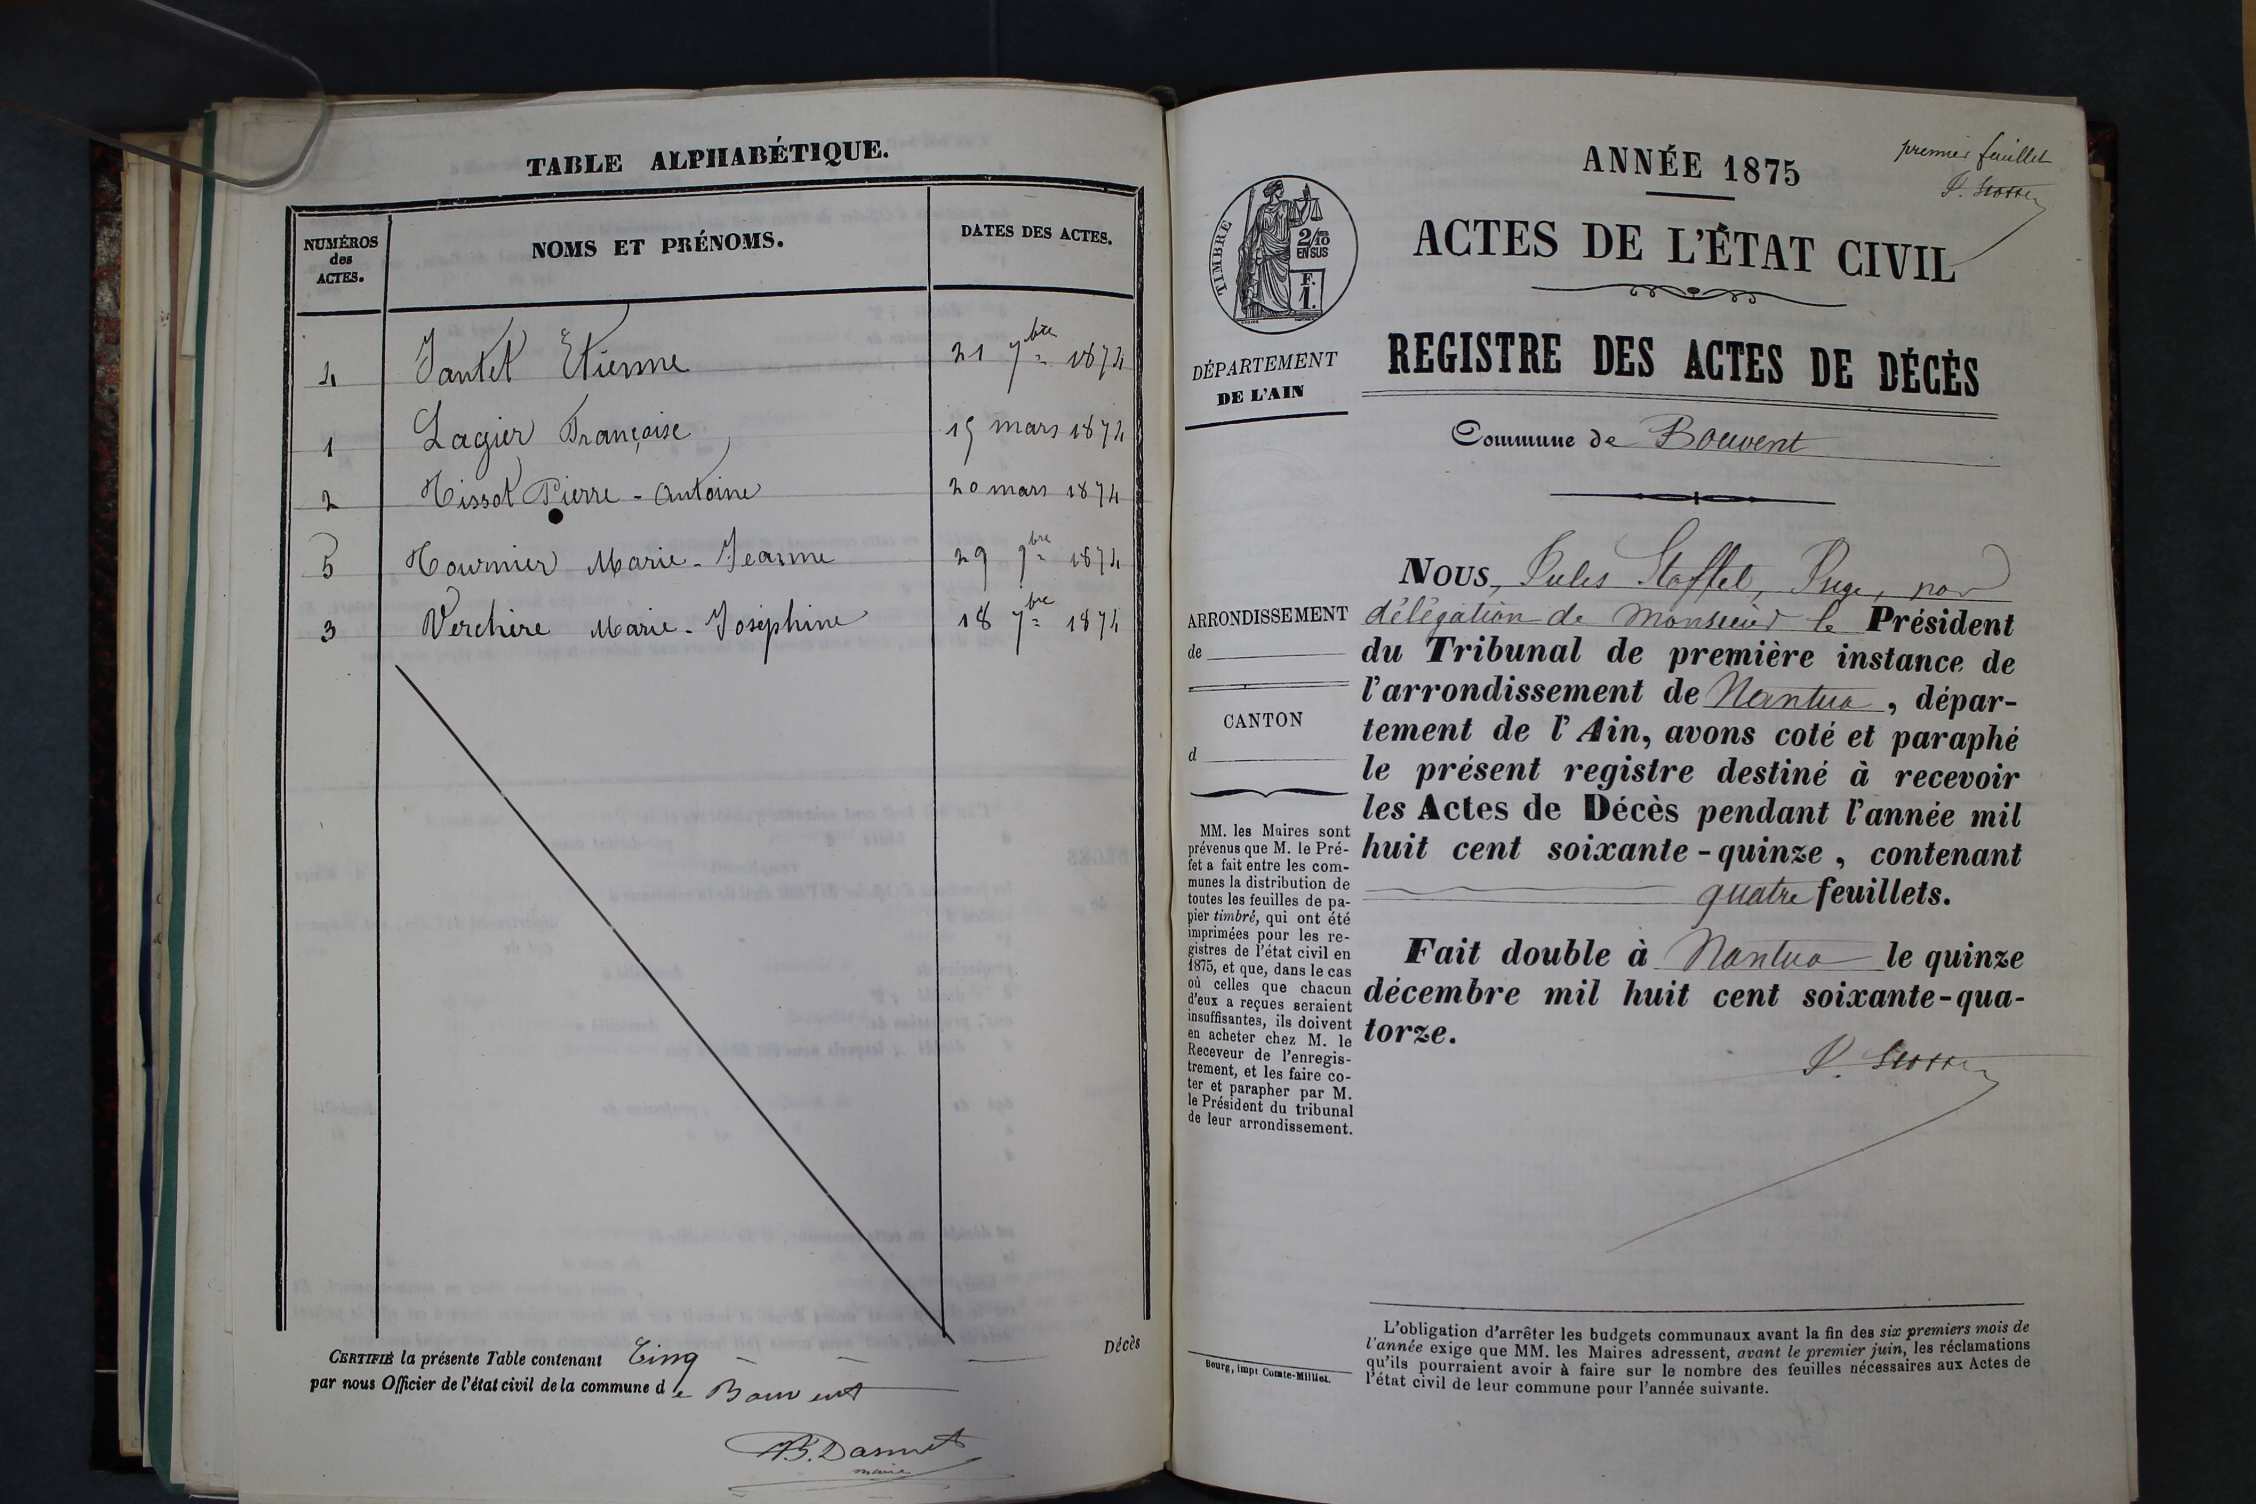 TABLE ALPHABÉTIQUE.
NUMÉROS
des
ACTES.
NOMS ET PRÉNOMS.
DATES DES ACTES.
4 Jantet Etienne 21 7bre 1874
1 Lagier Françoise 15 mars 1874
2 Tissot Pierre - Antoine 20 mars 1874
5 Tournier Marie - Jeanne 29 9bre 1874
3 Verchère Marie - Joséphine 18 7bre 1874
CERTIFIÉ la présente Table contenant Cinq Décès
par nous Officier de l'état civil de la commune de Bouvent
maire
premier feuillet
ANNÉE 1875
ACTES DE L'ÉTAT CIVIL
TIMBRE
2/10
EN SUS
F.
1.
DÉPARTEMENT
DE L'AIN
REGISTRE DES ACTES DE DÉCÈS
Commune de Bouvent
ARRONDISSEMENT
de
CANTON
d
MM. les Maires sont
prévenus que M. le Pré-
fet a fait entre les com-
munes la distribution de
toutes les feuilles de pa-
pier timbré, qui ont été
imprimées pour les re-
gistres de l'état civil en
1875, et que, dans le cas
où celles que chacun
d'eux a reçues seraient
insuffisantes, ils doivent
en acheter chez M. le
Receveur de l'enregis-
trement, et les faire co-
ter et parapher par M.
le Président du tribunal
de leur arrondissement.
Bourg, impr Comte-Milliet.
NOUS, Jules Stoffel, Juge, par
délégation de Monsieur le Président
du Tribunal de première instance de
l'arrondissement de Nantua, dépar-
tement de l'Ain, avons coté et paraphé
le présent registre destiné à recevoir
les Actes de Décès pendant l'année mil
huit cent soixante-quinze, contenant
quatre feuillets.
Fait double à Nantua le quinze
décembre mil huit cent soixante-qua-
torze.
L'obligation d'arrêter les budgets communaux avant la fin des six premiers mois de
l'année exige que MM. les Maires adressent, avant le premier juin, les réclamations
qu'ils pourraient avoir à faire sur le nombre des feuilles nécessaires aux Actes de
l'état civil de leur commune pour l'année suivante.